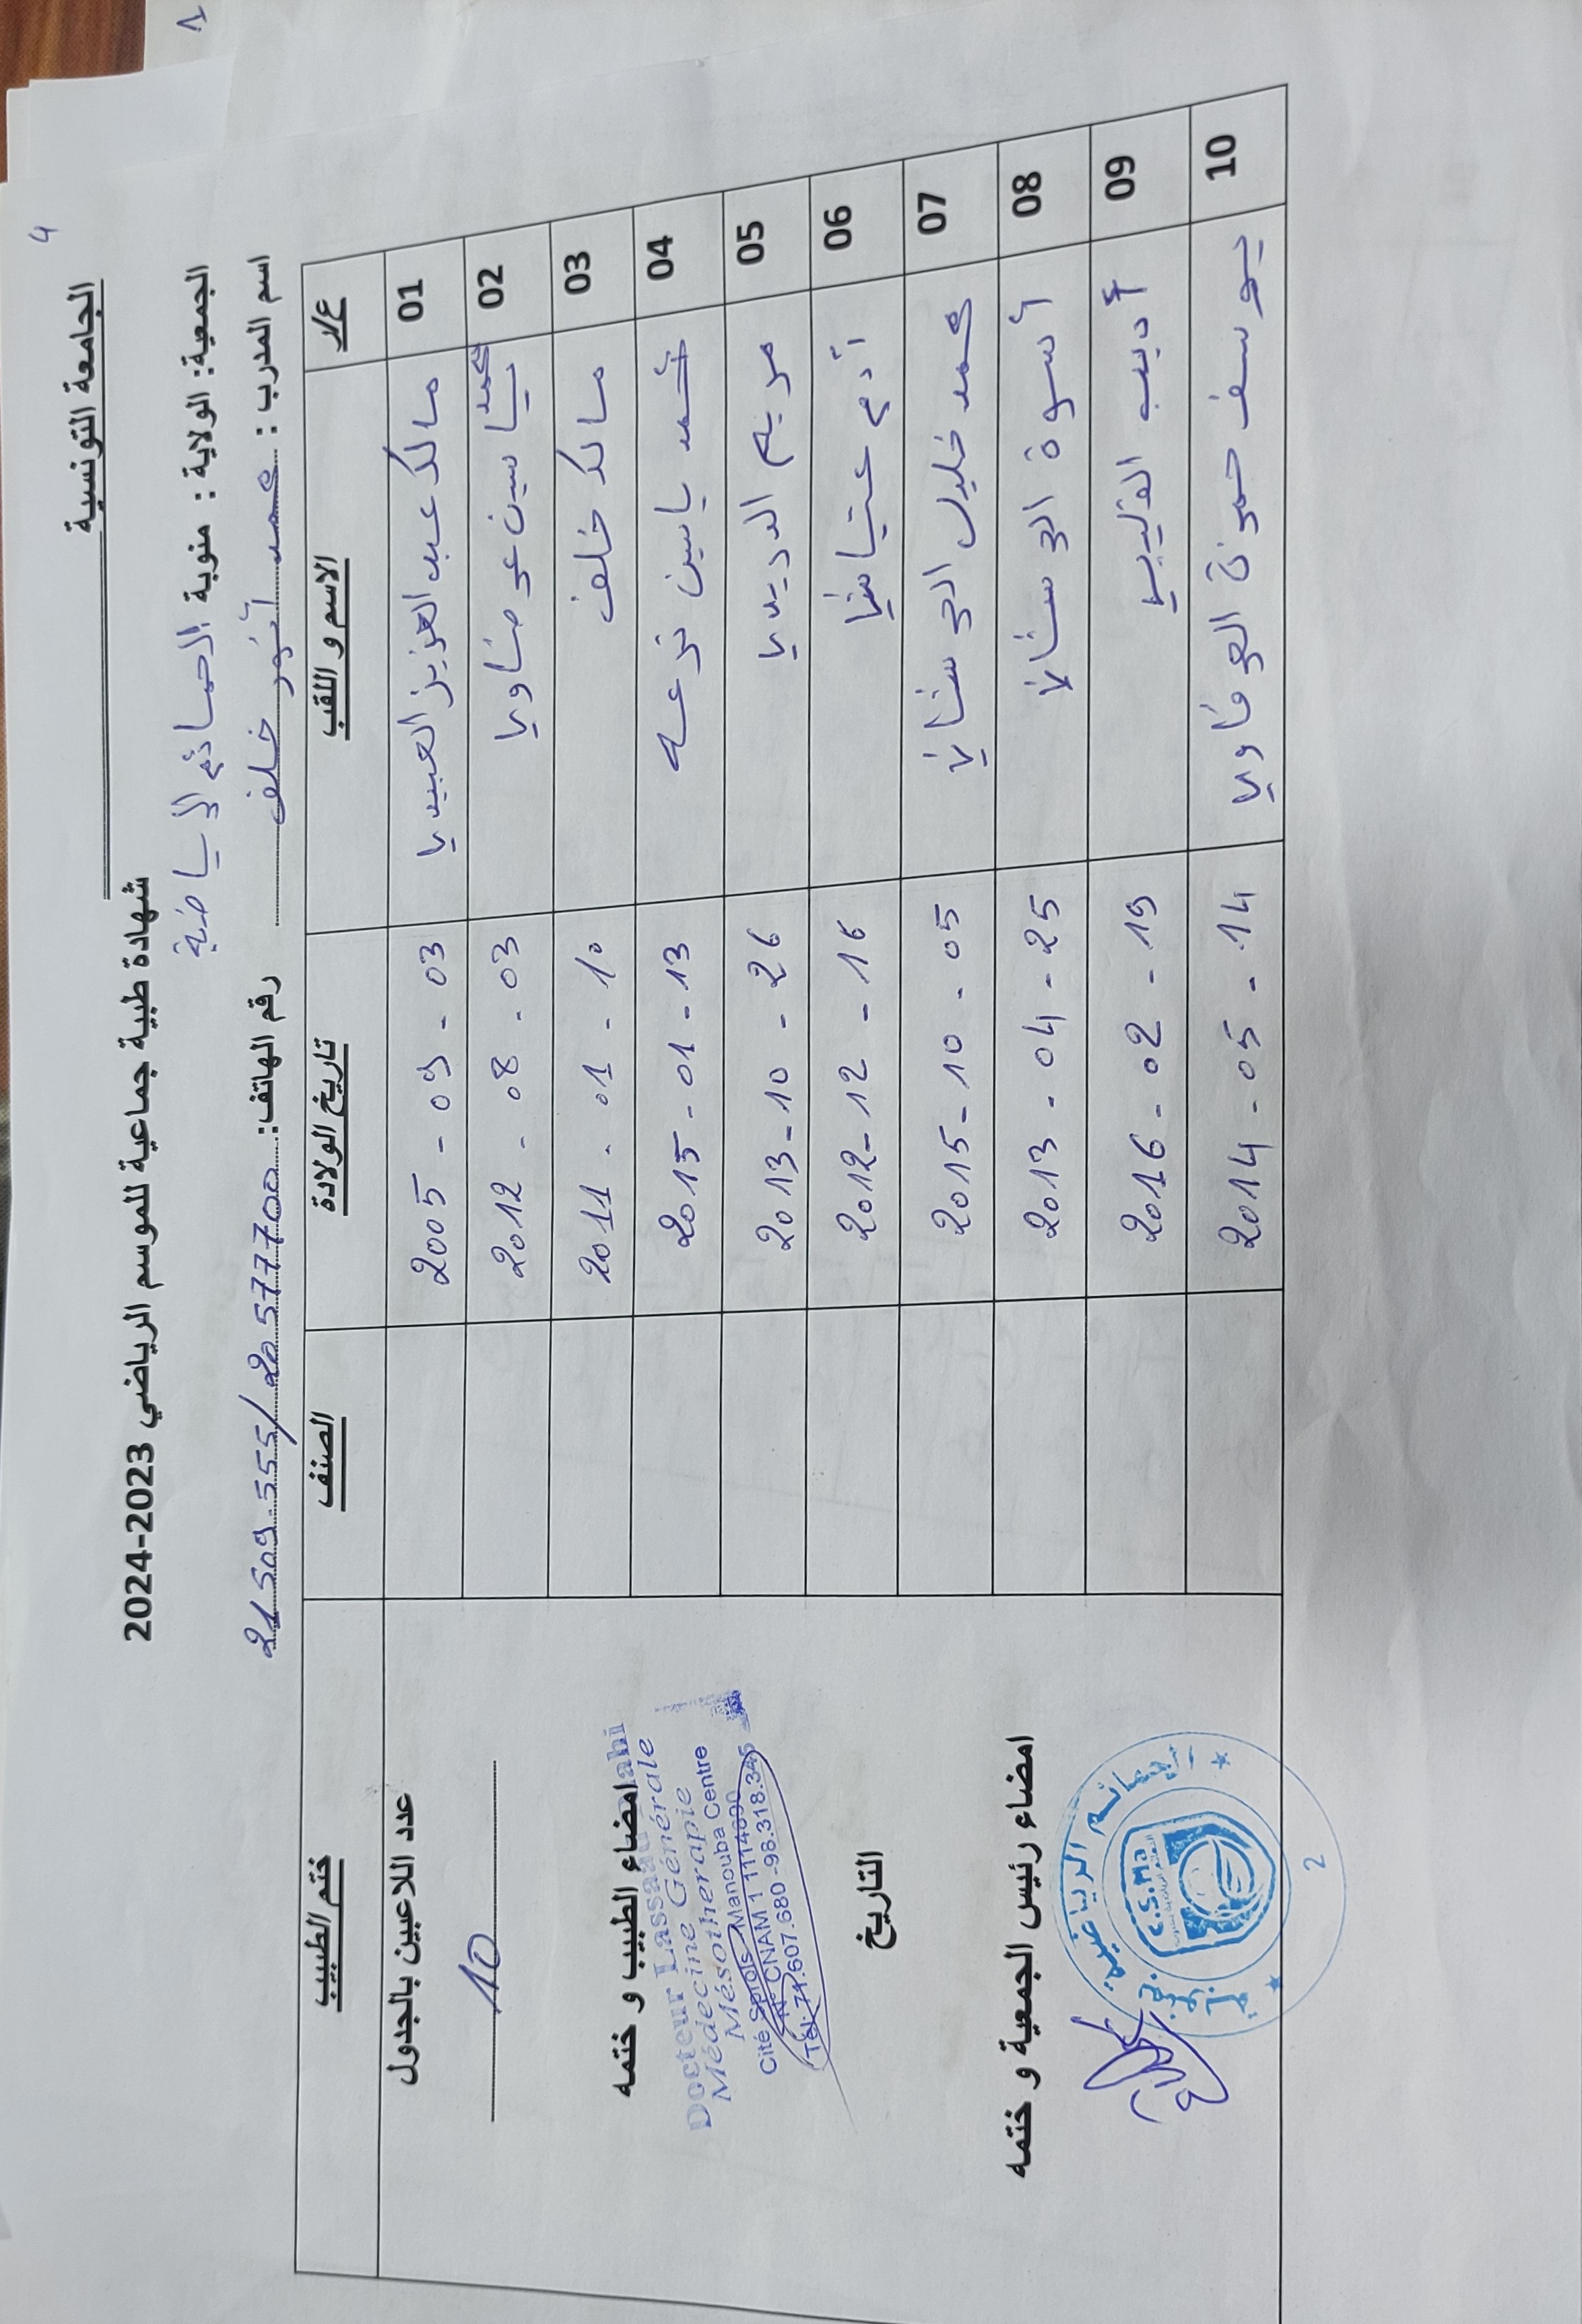 4
الجامعة التونسية
شهادة طبية جماعية للموسم الرياضي 2023-2024
الجمعية: الولاية : منوبة الحمائم الرياضية
اسم المدرب : محمد أنور خلف رقم الهاتف: 21 509 555/ 20 577700
ع/ر الاسم و اللقب تاريخ الولادة الصنف ختم الطبيب
01 مالك عبد العزيز العبيدي 2005 - 09 - 03
02 محمد ياسين عرضاوي 2012 - 08 - 03
03 مالك خلف 2011 - 01 - 10
04 محمد ياسين ترعة 2015 - 01 - 13
05 مريم الدريدي 2013 - 10 - 26
06 آدم 2012 - 12 - 16
07 محمد خليل الرشاني 2015 - 10 - 05
08 أسوة الرشاني 2013 - 04 - 25
09 أديب القليبي 2016 - 02 - 19
10 يوسف حمزة العرفاوي 2014 - 05 - 14
عدد اللاعبين بالجدول
10
امضاء الطبيب و ختمه
Docteur Lassaad
Médecine Générale
Mésotherapie
Cité Sprols Manouba Centre
N° CNAM 1 1114690
Tél: 71.607.680 - 98.318.345
التاريخ
امضاء رئيس الجمعية و ختمه
C.S.Ma
2